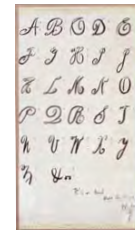 A B C D E
F G H I J
K L M N O
P Q R S T
U V W X Y
Z &